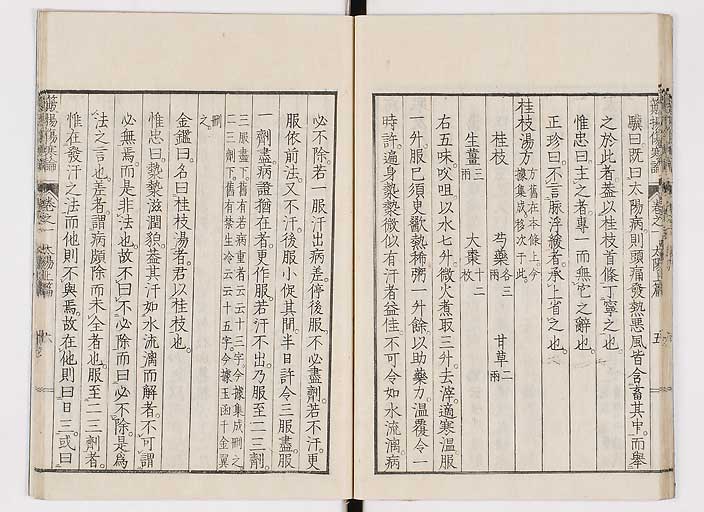 驥曰既曰太陽病則頭痛發熱惡風皆含畜其中而舉
之於此者蓋以桂枝首條丁寧之也
惟忠曰主之者專一而無它之辭也
正珍曰不言脈浮緩者承上省之也
桂枝湯方方舊在本條上今據集成移次于此
桂枝 芍藥各三兩 甘草二兩
生薑三兩 大棗十二枚
右五味㕮咀以水七升微火煮取三升去滓適寒溫服
一升服已須臾歠熱稀粥一升餘以助藥力溫覆令一
時許遍身漐漐微似有汗者益佳不可令如水流漓病
必不除若一服汗出病差停後服不必盡劑若不汗更
服依前法又不汗後服小促其間半日許令三服盡服
一劑盡病證猶在者更作服若汗不出乃服至二三劑
三服盡下舊有若病重者云云十三字今據集成刪之
二三劑下舊有禁生冷云云十五字今據玉函千金翼
刪之
金鑑曰名曰桂枝湯者君以桂枝也
惟忠曰漐漐滋潤貌蓋其汗如水流漓而解者不可謂
必無焉而是非法也故不曰不必除而曰必不除是爲
法之言也差者謂病頗除而未全者也服至二三劑者
惟在發汗之法而他則不與焉故在他則曰日三或曰
卷之一 太陽上篇 五
卷之一 太陽上篇 六